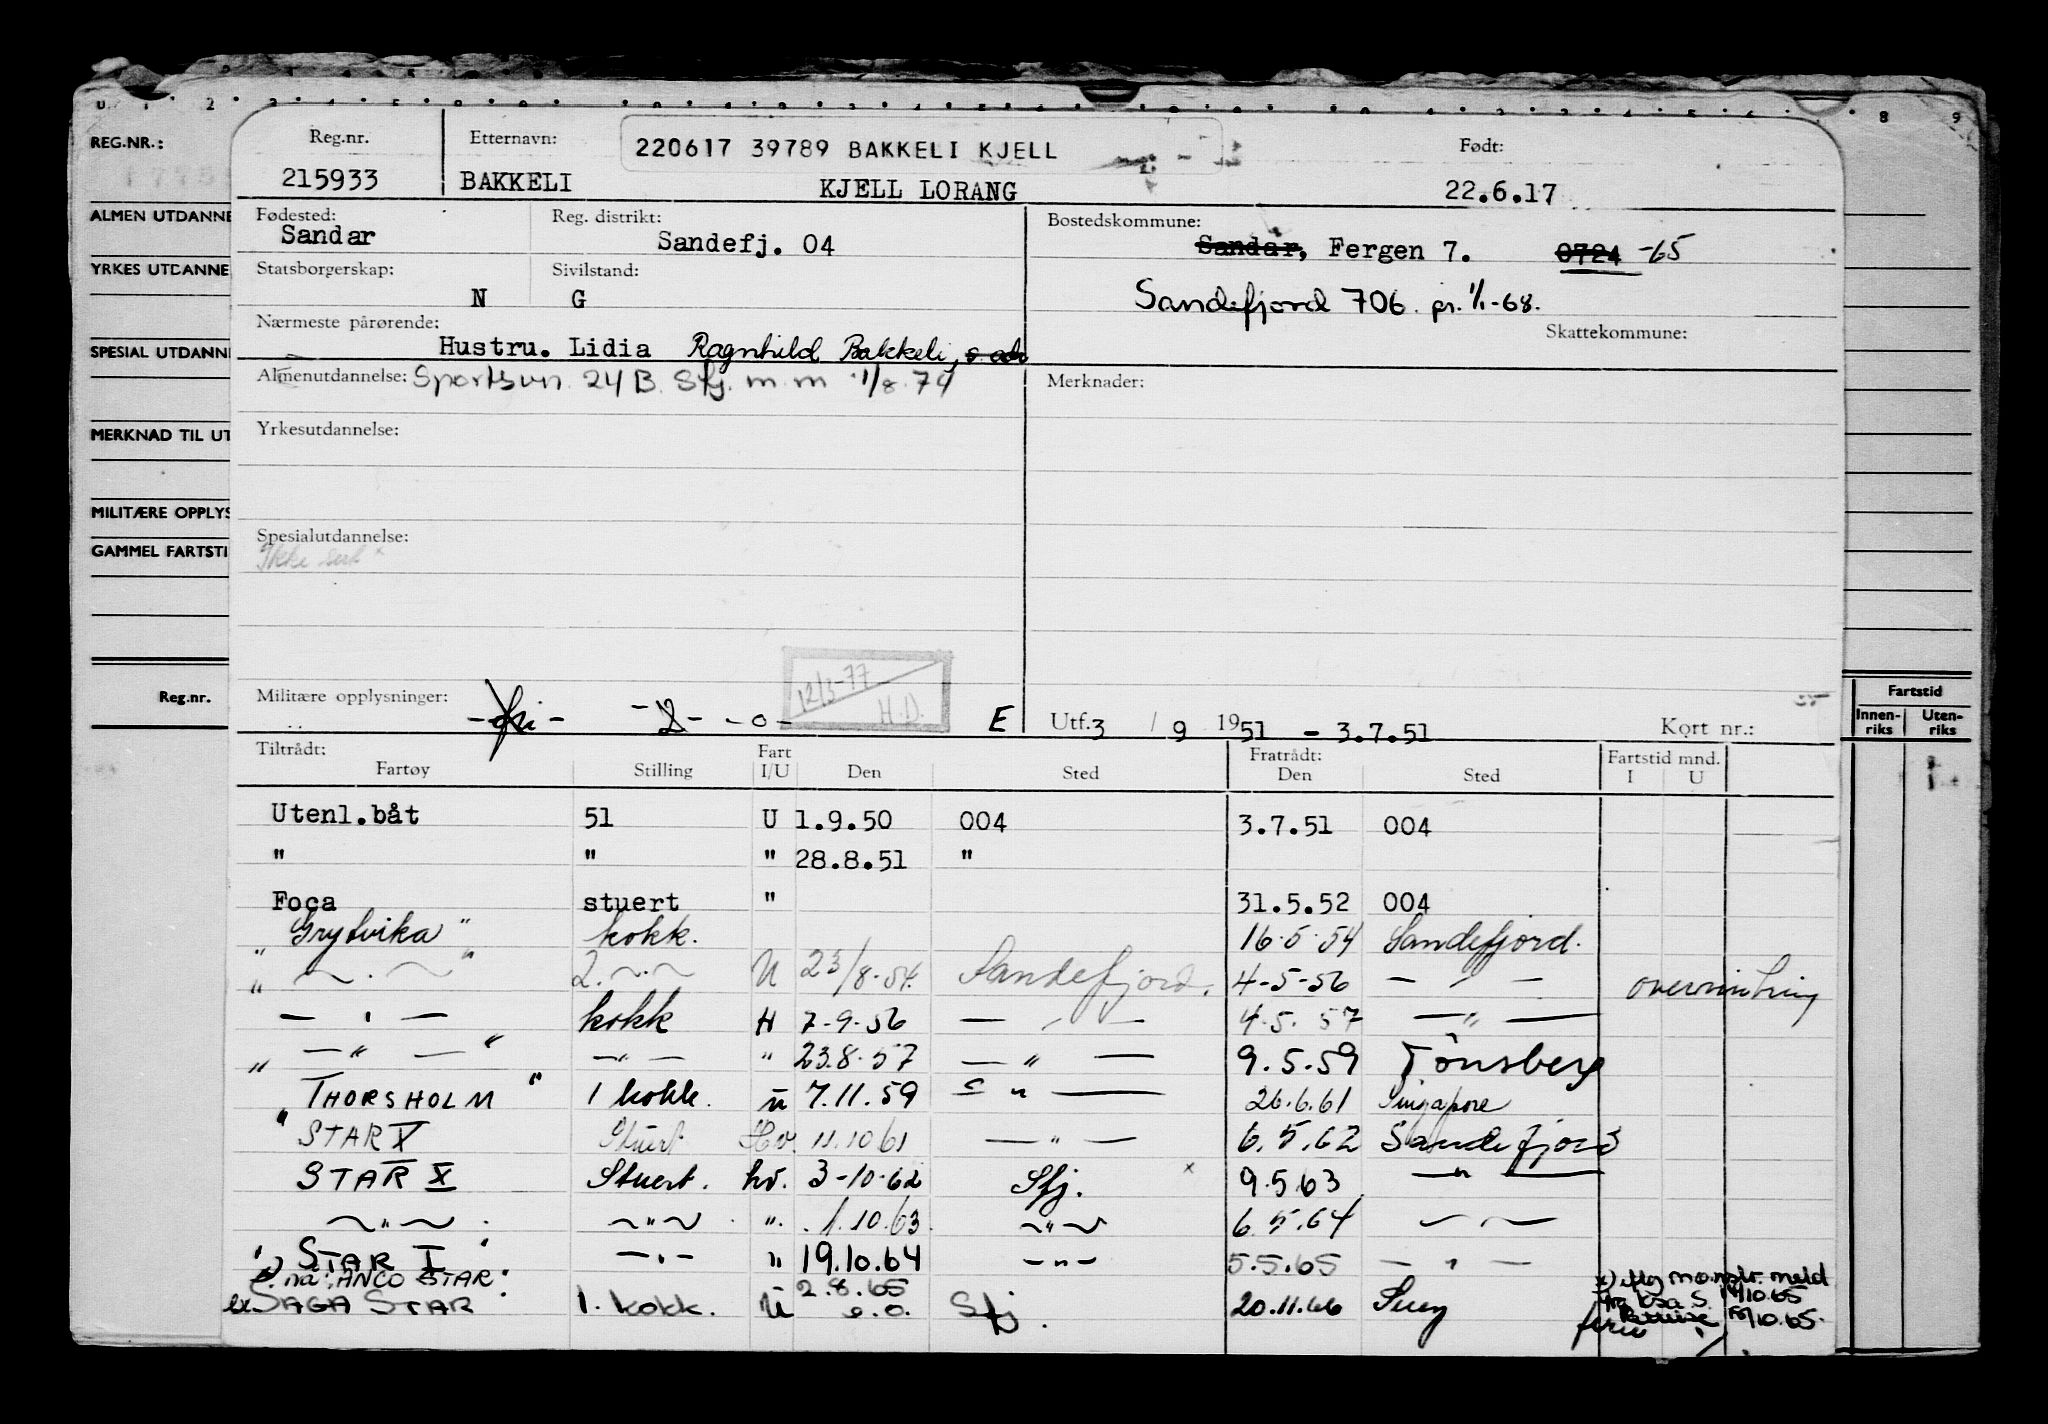 U 1 2 3 4 5 6 8 9
REG.NR.:
ALMEN UTDANNE
YRKES UTDANNE
SPESIAL UTDANNE
MERKNAD TIL UT
MILITÆRE OPPLYS
GAMMEL FARTSTI
Reg.nr.
Fartstid
Innen-riks Uten-riks
Reg.nr. Etternavn: 220617 39789 BAKKELI KJELL Født:
215933 BAKKELI KJELL LORANG 22.6.17
Fødested: Reg. distrikt: Bostedskommune:
Sandar Sandefj. 04 Sandar, Fergen 7. 0724 -65
Statsborgerskap: Sivilstand:
N G Sandefjord 706. pr. 1/1-68.
Nærmeste pårørende: Skattekommune:
Hustru. Lidia Ragnhild Bakkeli, s. adr
Almenutdannelse: Sportsvn. 24 B. Sfj. m.m 1/8.74 Merknader:
Yrkesutdannelse:
Spesialutdannelse:
Ikke sert
12/3-77
H.D.
Militære opplysninger: - - - o - E Utf. 3 / 9 1951 - 3.7.51 Kort nr.:
Tiltrådt: Fart Fratrådt: Fartstid mnd.
Fartøy Stilling I/U Den Sted Den Sted I U
Utenl.båt 51 U 1.9.50 004 3.7.51 004
" " " 28.8.51 "
Foca stuert " 31.5.52 004
"Grytvika" kokk. 16.5.54 Sandefjord.
" ~ . ~ " 2. ~ . ~ U 23/8.54. Sandefjord. 4-5-56 — / — overvintring
— " — kokk H 7-9-56 — / — 4.5.57 — " —
" — " — " — " — " 23.8.57 — " — 9.5.59 Tönsberg
"THORSHOLM" 1 kokk. U 7.11.59 — " — 26.6.61 Singapore
"STAR V Stuert Hv. 11.10.61 — " — 6.5.62 Sandefjord
STAR X Stuert. hv. 3-10-62 Sfj. x 9.5.63 — " —
~ " ~ . ~ " ~ . ". 1.10.63. ~ " ~ 6.5.64 — " —
" x) STAR I " — " — " 19.10.64 — " — 5.5.65 — " —
nå: "ANCO STAR" 2.8.65 x) iflg mønstr. meld
ex SAGA STAR 1. kokk. U Sfj. 20.11.66 Suez ferie